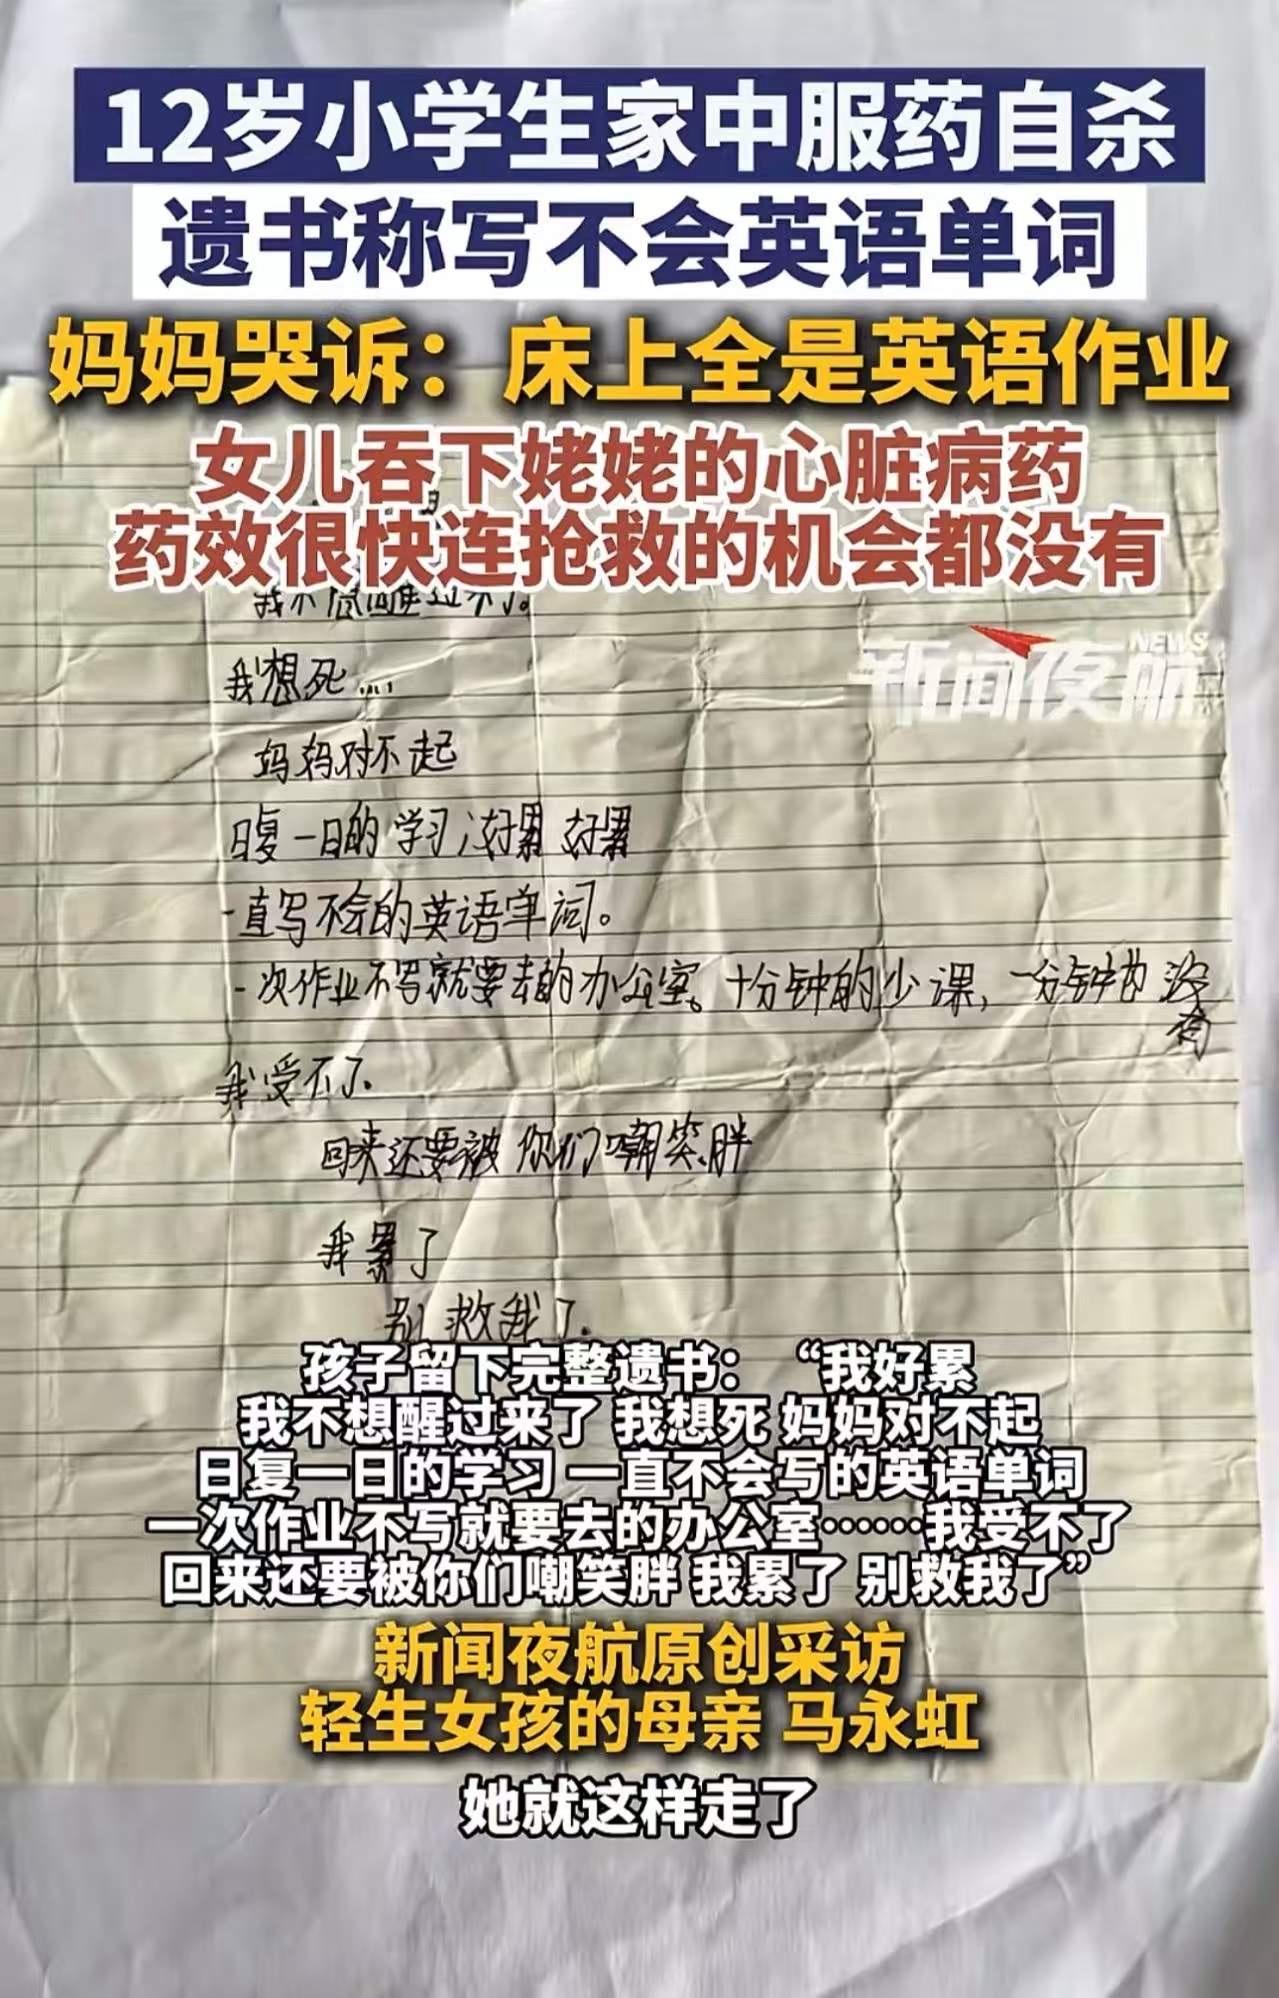 12岁小学生家中服药自杀
遗书称写不会英语单词
妈妈哭诉：床上全是英语作业
女儿吞下姥姥的心脏病药
药效很快连抢救的机会都没有
我不想醒过来了。
NEWS
新闻夜航
我想死....
妈妈对不起
日复一日的学习,好累 好累
一直写不会的英语单词。
一次作业不写就要去的办公室。十分钟的少课，一分钟也没有
我受不了
回来还要被你们嘲笑胖
我累了
别救我了.
孩子留下完整遗书：“我好累
我不想醒过来了 我想死 妈妈对不起
日复一日的学习 一直不会写的英语单词
一次作业不写就要去的办公室……我受不了
回来还要被你们嘲笑胖 我累了 别救我了”
新闻夜航原创采访
轻生女孩的母亲 马永虹
她就这样走了